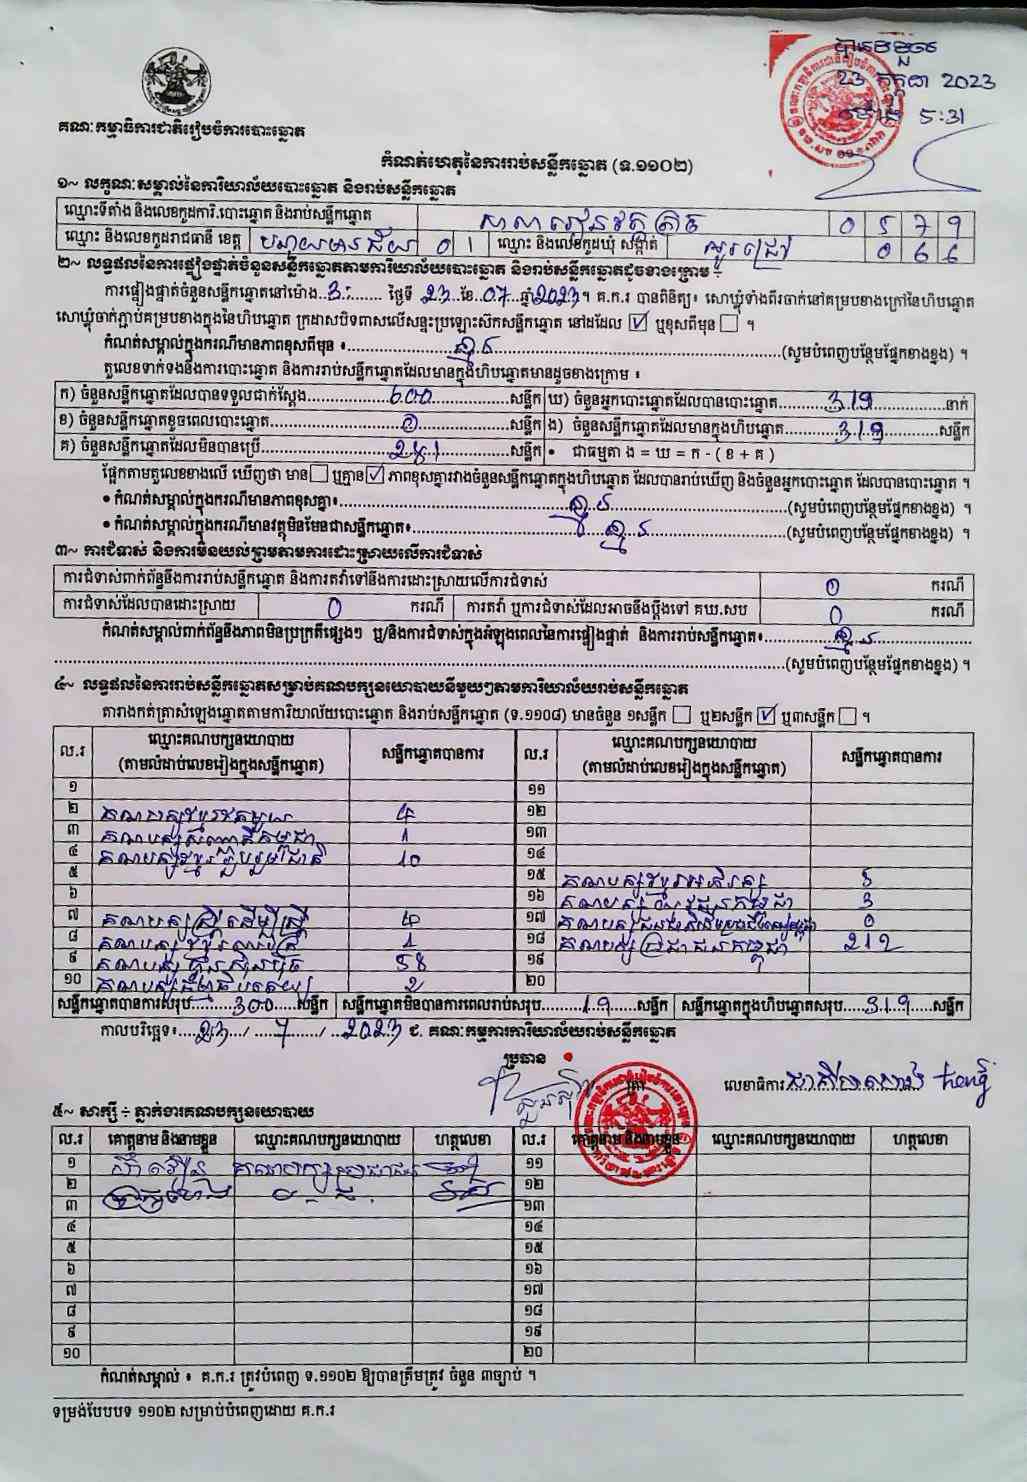 បានទទួល
23 កក្កដា 2023
ម៉ោង 5:31
គណៈកម្មាធិការជាតិរៀបចំការបោះឆ្នោត
កំណត់ហេតុនៃការរាប់សន្លឹកឆ្នោត (ទ.១១០២)
១~ លក្ខណៈសម្គាល់នៃការិយាល័យបោះឆ្នោត និងរាប់សន្លឹកឆ្នោត
ឈ្មោះទីតាំង និងលេខកូដការិ.បោះឆ្នោត និងរាប់សន្លឹកឆ្នោត សាលារៀនវត្ត 0 5 7 9
ឈ្មោះ និងលេខកូដរាជធានី ខេត្ត បន្ទាយមានជ័យ 0 1 ឈ្មោះ និងលេខកូដឃុំ សង្កាត់ អូរជ្រៅ 0 6 6
២~ លទ្ធផលនៃការផ្ទៀងផ្ទាត់ចំនួនសន្លឹកឆ្នោតតាមការិយាល័យបោះឆ្នោត និងរាប់សន្លឹកឆ្នោតដូចខាងក្រោម ÷
ការផ្ទៀងផ្ទាត់ចំនួនសន្លឹកឆ្នោតនៅម៉ោង..3:...... ថ្ងៃទី 23..ខែ.07..ឆ្នាំ2023។ គ.ក.រ បានពិនិត្យ៖ សោឃ្លុំទាំងពីរចាក់នៅគម្របខាងក្រៅនៃហិបឆ្នោត
សោឃ្លុំចាក់ភ្ជាប់គម្របខាងក្នុងនៃហិបឆ្នោត ក្រដាសបិទពាសលើសន្ទះប្រឡោះស៊កសន្លឹកឆ្នោត នៅដដែល ☑ ឬខុសពីមុន ☐ ។
កំណត់សម្គាល់ក្នុងករណីមានភាពខុសពីមុន ៖ គ្មាន (សូមបំពេញបន្ថែមផ្នែកខាងខ្នង) ។
តួលេខទាក់ទងនឹងការបោះឆ្នោត និងការរាប់សន្លឹកឆ្នោតដែលមានក្នុងហិបឆ្នោតមានដូចខាងក្រោម ៖
ក) ចំនួនសន្លឹកឆ្នោតដែលបានទទួលជាក់ស្តែង 600 សន្លឹក ឃ) ចំនួនអ្នកបោះឆ្នោតដែលបានបោះឆ្នោត 319 នាក់
ខ) ចំនួនសន្លឹកឆ្នោតខូចពេលបោះឆ្នោត 0 សន្លឹក ង) ចំនួនសន្លឹកឆ្នោតដែលមានក្នុងហិបឆ្នោត 319 សន្លឹក
គ) ចំនួនសន្លឹកឆ្នោតដែលមិនបានប្រើ 281 សន្លឹក • ជាធម្មតា ង = ឃ = ក - ( ខ + គ )
ផ្អែកតាមតួលេខខាងលើ ឃើញថា មាន ☐ ឬគ្មាន ☑ ភាពខុសគ្នារវាងចំនួនសន្លឹកឆ្នោតក្នុងហិបឆ្នោត ដែលបានរាប់ឃើញ និងចំនួនអ្នកបោះឆ្នោត ដែលបានបោះឆ្នោត ។
• កំណត់សម្គាល់ក្នុងករណីមានភាពខុសគ្នា៖ គ្មាន (សូមបំពេញបន្ថែមផ្នែកខាងខ្នង) ។
• កំណត់សម្គាល់ក្នុងករណីមានវត្ថុមិនមែនជាសន្លឹកឆ្នោត៖ គ្មាន (សូមបំពេញបន្ថែមផ្នែកខាងខ្នង) ។
៣~ ការជំទាស់ និងការមិនយល់ព្រមតាមការដោះស្រាយលើការជំទាស់
ការជំទាស់ពាក់ព័ន្ធនឹងការរាប់សន្លឹកឆ្នោត និងការតវ៉ាទៅនឹងការដោះស្រាយលើការជំទាស់ 0 ករណី
ការជំទាស់ដែលបានដោះស្រាយ 0 ករណី ការតវ៉ា ឬការជំទាស់ដែលអាចនឹងប្តឹងទៅ គឃ.សប 0 ករណី
កំណត់សម្គាល់ពាក់ព័ន្ធនឹងភាពមិនប្រក្រតីផ្សេងៗ ឬ/និងការជំទាស់ក្នុងអំឡុងពេលនៃការផ្ទៀងផ្ទាត់ និងការរាប់សន្លឹកឆ្នោត៖ គ្មាន
(សូមបំពេញបន្ថែមផ្នែកខាងខ្នង) ។
៤~ លទ្ធផលនៃការរាប់សន្លឹកឆ្នោតសម្រាប់គណបក្សនយោបាយនីមួយៗតាមការិយាល័យរាប់សន្លឹកឆ្នោត
តារាងកត់ត្រាសំឡេងឆ្នោតតាមការិយាល័យបោះឆ្នោត និងរាប់សន្លឹកឆ្នោត (ទ.១១០៨) មានចំនួន ១សន្លឹក ☐ ឬ២សន្លឹក ☑ ឬ៣សន្លឹក ☐ ។
ល.រ ឈ្មោះគណបក្សនយោបាយ (តាមលំដាប់លេខរៀងក្នុងសន្លឹកឆ្នោត) សន្លឹកឆ្នោតបានការ ល.រ ឈ្មោះគណបក្សនយោបាយ (តាមលំដាប់លេខរៀងក្នុងសន្លឹកឆ្នោត) សន្លឹកឆ្នោតបានការ
១ ១១
២ គណបក្សខ្មែរតែមួយ 4 ១២
៣ គណបក្ស កម្ពុជា 1 ១៣
៤ គណបក្សខ្មែររួបរួមជាតិ 10 ១៤
៥ ១៥ គណបក្សខ្មែរអភិរក្ស 5
៦ ១៦ គណបក្ស កម្ពុជា 3
៧ គណបក្សស្ត្រីដើម្បីស្ត្រី 4 ១៧ គណបក្ស 0
៨ គណបក្ស 1 ១៨ គណបក្សប្រជាជនកម្ពុជា 212
៩ គណបក្សហ្វ៊ុនស៊ិនប៉ិច 58 ១៩
១០ គណបក្ស 2 ២០
សន្លឹកឆ្នោតបានការសរុប 300 សន្លឹក សន្លឹកឆ្នោតមិនបានការពេលរាប់សរុប 19 សន្លឹក សន្លឹកឆ្នោតក្នុងហិបឆ្នោតសរុប 319 សន្លឹក
កាលបរិច្ឆេទ៖ 23 / 7 / 2023 ជ. គណៈកម្មការការិយាល័យរាប់សន្លឹកឆ្នោត
ប្រធាន ត្រា លេខាធិការ
៥~ សាក្សី ÷ ភ្នាក់ងារគណបក្សនយោបាយ
ល.រ គោត្តនាម និងនាមខ្លួន ឈ្មោះគណបក្សនយោបាយ ហត្ថលេខា ល.រ គោត្តនាម និងនាមខ្លួន ឈ្មោះគណបក្សនយោបាយ ហត្ថលេខា
១ គណបក្សប្រជាជន ១១
២ ១២
៣ ១៣
៤ ១៤
៥ ១៥
៦ ១៦
៧ ១៧
៨ ១៨
៩ ១៩
១០ ២០
កំណត់សម្គាល់ ៖ គ.ក.រ ត្រូវបំពេញ ទ.១១០២ ឱ្យបានត្រឹមត្រូវ ចំនួន ៣ច្បាប់ ។
ទម្រង់បែបបទ ១១០២ សម្រាប់បំពេញដោយ គ.ក.រ